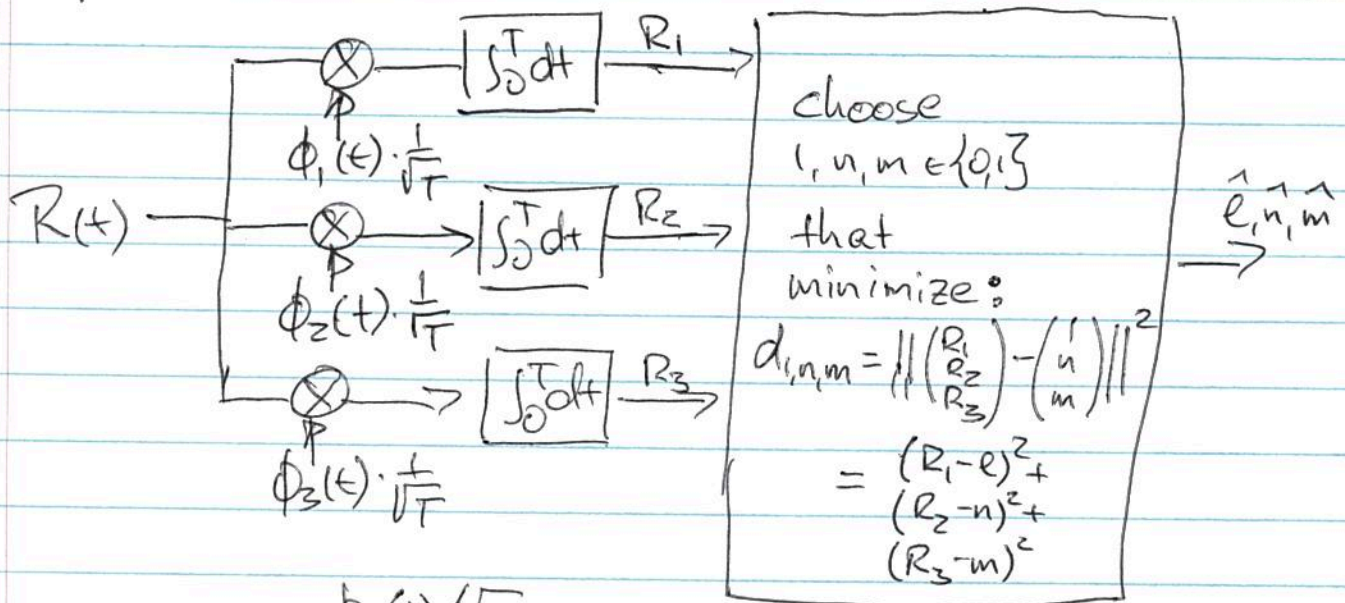 R(t)
⊗
∫₀ᵀ dt
R₁
ϕ₁(t)·1/√T
⊗
∫₀ᵀ dt
R₂
ϕ₂(t)·1/√T
⊗
∫₀ᵀ dt
R₃
ϕ₃(t)·1/√T
choose
l, n, m ∈ {0,1}
that
minimize:
d_{l,n,m} = ||(R₁ R₂ R₃) − (l n m)||²
= (R₁−l)²+
(R₂−n)²+
(R₃−m)²
l̂, n̂, m̂